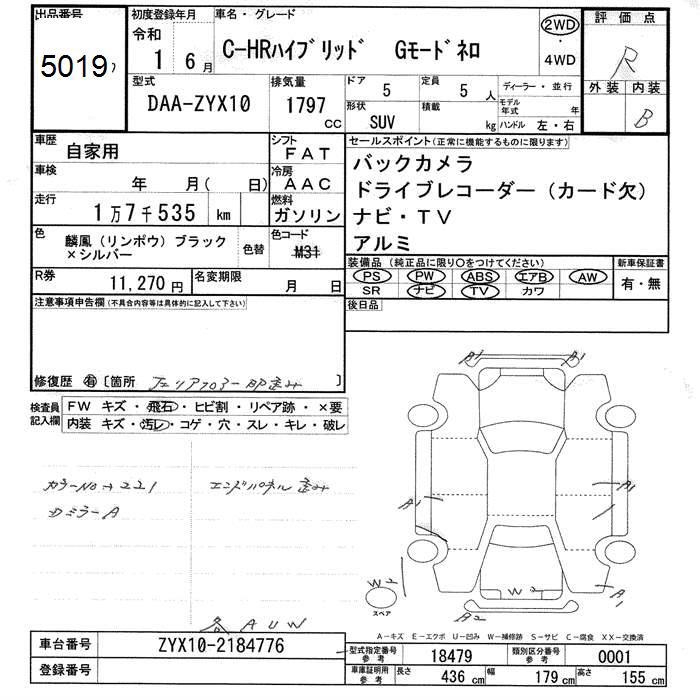 出品番号 初度登録年月 車名・グレード 評価点
5019 令和 1 6月 C-HRハイブリッド Gモードネロ 2WD・4WD R
型式 排気量 ドア 定員 ディーラー・並行 外装 内装
DAA-ZYX10 1797 cc 5 5 人 モデル年式 年 B
形状 SUV 積載 kg ハンドル 左・右
車歴 自家用 シフト FAT セールスポイント(正常に機能するものに限ります)
車検 年 月( 日) 冷房 AAC バックカメラ
ドライブレコーダー(カード欠)
走行 1万7千535 km 燃料 ガソリン ナビ・TV
アルミ
色 麟鳳(リンポウ)ブラック×シルバー 色替 色コード M31
装備品(純正品に限り○をつけてください) 新車保証書
PS PW ABS エアB AW 有・無
SR ナビ TV カワ
R券 11,270円 名変期限 月 日
後日品
注意事項申告欄(不具合内容等は具体的に記入して下さい)
修復歴 有 〔箇所 〕
検査員記入欄 FW キズ・飛石・ヒビ割・リペア跡・×要
内装 キズ・汚レ・コゲ・穴・スレ・キレ・破レ
カラーNo→221 エンドパネル歪み
ウミラーA
A1 A1
A1 A1
W2 W2 A1
スペア A2
各AUW
A-キズ E-エクボ U-凹み W-補修跡 S-サビ C-腐食 XX-交換済
車台番号 ZYX10-2184776
型式指定番号 参考 18479 類別区分番号 参考 0001
登録番号
車庫証明用 参考 長さ 436 cm 幅 179 cm 高さ 155 cm